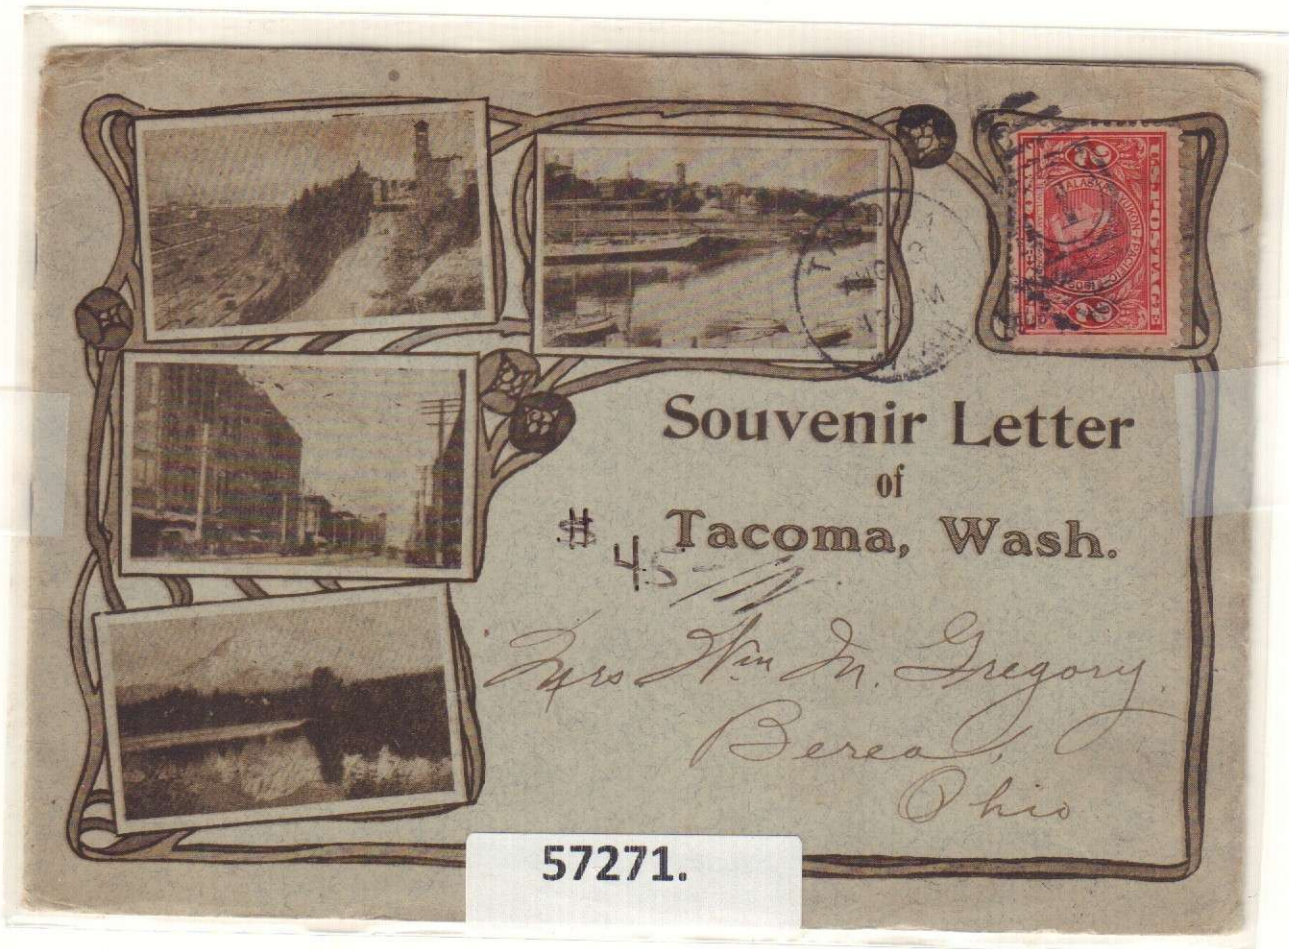 U.S. POSTAGE
2
ALASKA-YUKON-PACIFIC
2
Souvenir Letter
of
Tacoma, Wash.
$ 45-
Mrs Wm M. Gregory.
Berea,
Ohio
57271.